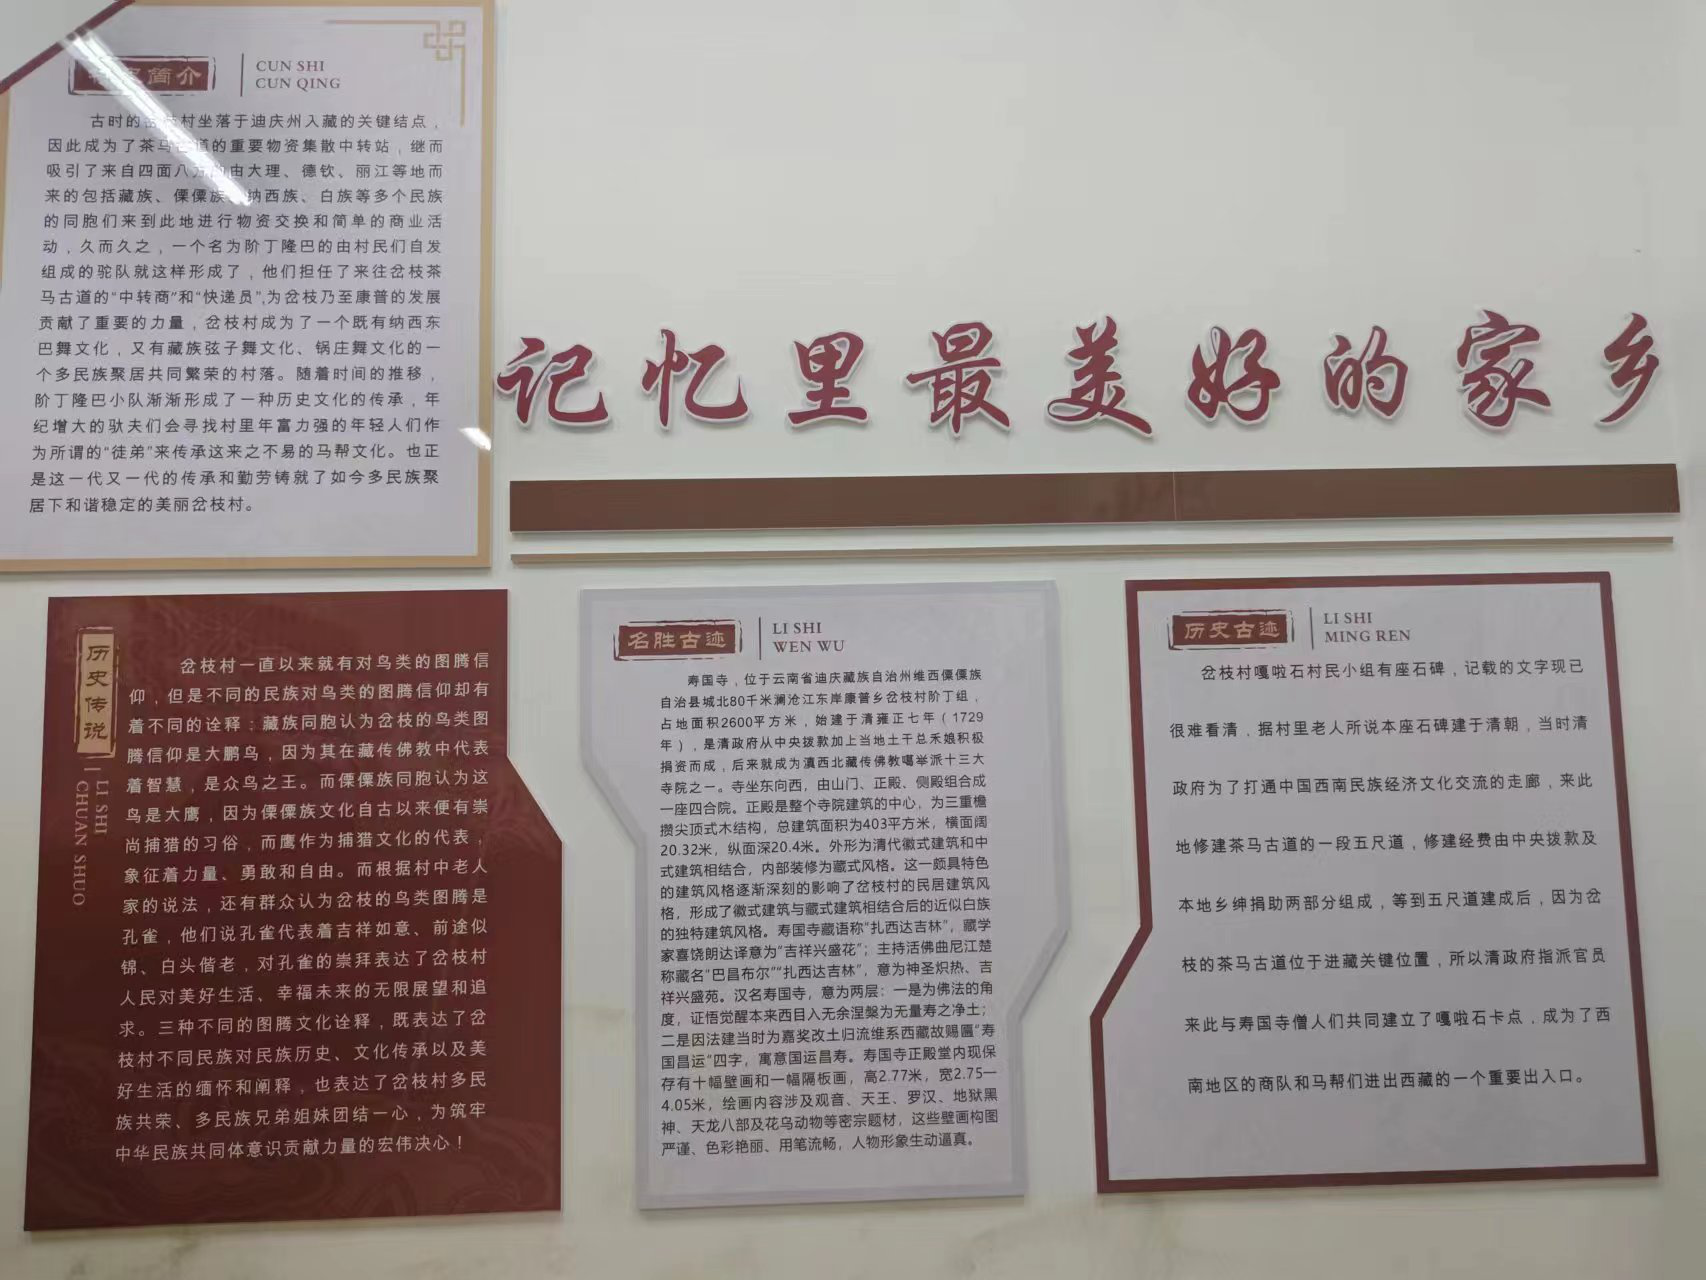 简介
CUN SHI
CUN QING
古时的岔枝村坐落于迪庆州入藏的关键结点，
因此成为了茶马古道的重要物资集散中转站，继而
吸引了来自四面八方的由大理、德钦、丽江等地而
来的包括藏族、傈僳族、纳西族、白族等多个民族
的同胞们来到此地进行物资交换和简单的商业活
动，久而久之，一个名为阶丁隆巴的由村民们自发
组成的驼队就这样形成了，他们担任了来往岔枝茶
马古道的“中转商”和“快递员”,为岔枝乃至康普的发展
贡献了重要的力量，岔枝村成为了一个既有纳西东
巴舞文化，又有藏族弦子舞文化、锅庄舞文化的一
个多民族聚居共同繁荣的村落。随着时间的推移，
阶丁隆巴小队渐渐形成了一种历史文化的传承，年
纪增大的驮夫们会寻找村里年富力强的年轻人们作
为所谓的“徒弟”来传承这来之不易的马帮文化。也正
是这一代又一代的传承和勤劳铸就了如今多民族聚
居下和谐稳定的美丽岔枝村。
记忆里最美好的家乡
历史传说
LI SHI
CHUAN SHUO
岔枝村一直以来就有对鸟类的图腾信
仰，但是不同的民族对鸟类的图腾信仰却有
着不同的诠释：藏族同胞认为岔枝的鸟类图
腾信仰是大鹏鸟，因为其在藏传佛教中代表
着智慧，是众鸟之王。而傈僳族同胞认为这
鸟是大鹰，因为傈僳族文化自古以来便有崇
尚捕猎的习俗，而鹰作为捕猎文化的代表，
象征着力量、勇敢和自由。而根据村中老人
家的说法，还有群众认为岔枝的鸟类图腾是
孔雀，他们说孔雀代表着吉祥如意、前途似
锦、白头偕老，对孔雀的崇拜表达了岔枝村
人民对美好生活、幸福未来的无限展望和追
求。三种不同的图腾文化诠释，既表达了岔
枝村不同民族对民族历史、文化传承以及美
好生活的缅怀和阐释，也表达了岔枝村多民
族共荣、多民族兄弟姐妹团结一心，为筑牢
中华民族共同体意识贡献力量的宏伟决心！
名胜古迹
LI SHI
WEN WU
寿国寺，位于云南省迪庆藏族自治州维西傈僳族
自治县城北80千米澜沧江东岸康普乡岔枝村阶丁组，
占地面积2600平方米，始建于清雍正七年（1729
年），是清政府从中央拨款加上当地土干总禾娘积极
捐资而成，后来就成为滇西北藏传佛教噶举派十三大
寺院之一。寺坐东向西，由山门、正殿、侧殿组合成
一座四合院。正殿是整个寺院建筑的中心，为三重檐
攒尖顶式木结构，总建筑面积为403平方米，横面阔
20.32米，纵面深20.4米。外形为清代徽式建筑和中
式建筑相结合，内部装修为藏式风格。这一颇具特色
的建筑风格逐渐深刻的影响了岔枝村的民居建筑风
格，形成了徽式建筑与藏式建筑相结合后的近似白族
的独特建筑风格。寿国寺藏语称“扎西达吉林”，藏学
家喜饶朗达译意为“吉祥兴盛花”；主持活佛曲尼江楚
称藏名“巴昌布尔”“扎西达吉林”，意为神圣炽热、吉
祥兴盛苑。汉名寿国寺，意为两层：一是为佛法的角
度，证悟觉醒本来西目入无余涅槃为无量寿之净土；
二是因法建当时为嘉奖改土归流维系西藏故赐匾“寿
国昌运”四字，寓意国运昌寿。寿国寺正殿堂内现保
存有十幅壁画和一幅隔板画，高2.77米，宽2.75—
4.05米，绘画内容涉及观音、天王、罗汉、地狱黑
神、天龙八部及花鸟动物等密宗题材，这些壁画构图
严谨、色彩艳丽、用笔流畅，人物形象生动逼真。
历史古迹
LI SHI
MING REN
岔枝村嘎啦石村民小组有座石碑，记载的文字现已
很难看清，据村里老人所说本座石碑建于清朝，当时清
政府为了打通中国西南民族经济文化交流的走廊，来此
地修建茶马古道的一段五尺道，修建经费由中央拨款及
本地乡绅捐助两部分组成，等到五尺道建成后，因为岔
枝的茶马古道位于进藏关键位置，所以清政府指派官员
来此与寿国寺僧人们共同建立了嘎啦石卡点，成为了西
南地区的商队和马帮们进出西藏的一个重要出入口。